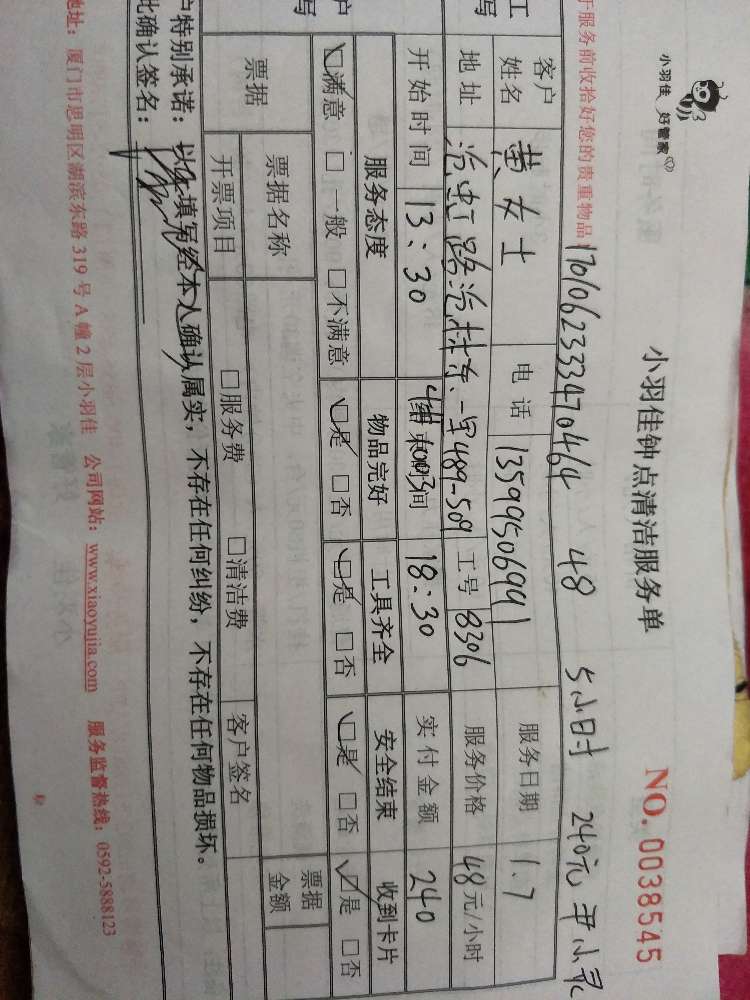 小羽佳 好管家
小羽佳钟点清洁服务单
NO. 0038545
于服务前收拾好您的贵重物品
48 5小时 240元
客户姓名 黄女士 电话 13599506991 服务日期 1.7
地址 工号 8306 服务价格 48元/小时
开始时间 13:30 结束时间 18:30 实付金额 240
服务态度 物品完好 工具齐全 安全结束 收到卡片
☑满意 □一般 □不满意 ☑是 □否 ☑是 □否 ☑是 □否 ☑是 □否
票据 票据名称 票据金额
开票项目 □服务费 □清洁费 客户签名
户特别承诺：以上填写经本人确认属实，不存在任何纠纷，不存在任何物品损坏。
此确认签名：
地址：厦门市思明区湖滨东路319号A幢2层小羽佳 公司网站：www.xiaoyujia.com 服务监督热线：0592-5888123